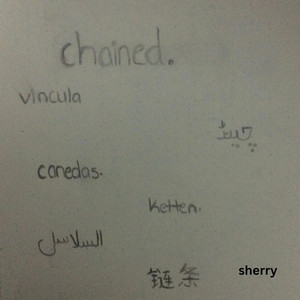 chained.
vincula
canedas.
Ketten.
السلاسل
链条
sherry